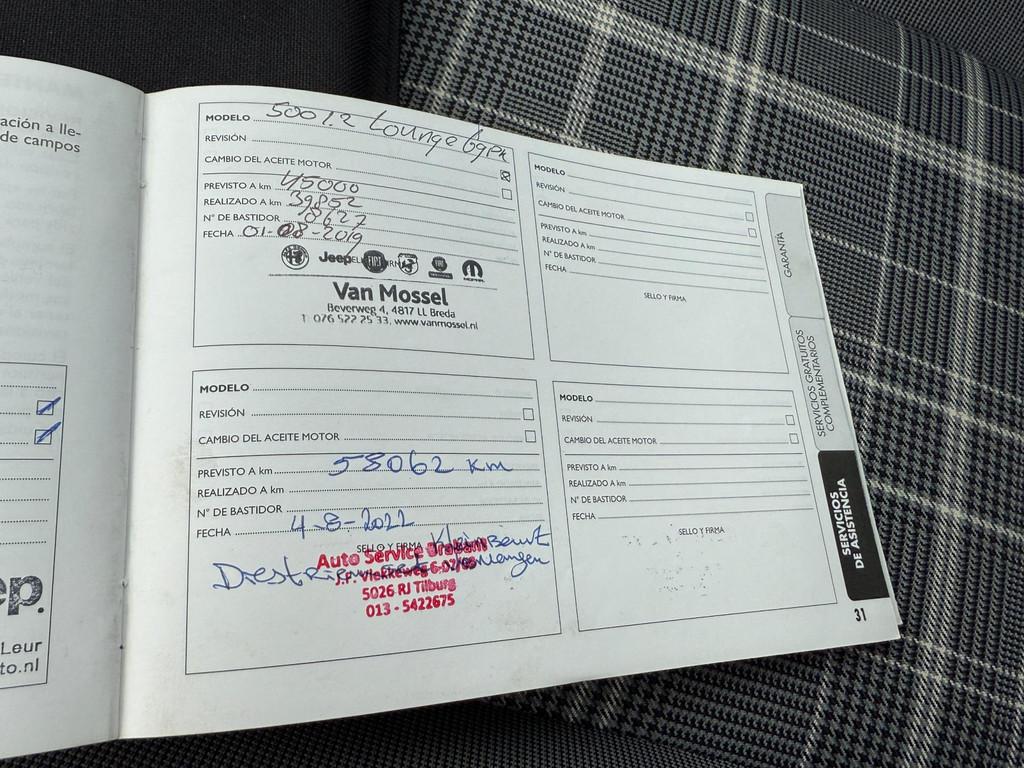 ación a lle-
de campos
ep.
Leur
to.nl
MODELO 500 1.2 Lounge
REVISIÓN
CAMBIO DEL ACEITE MOTOR
PREVISTO A km 45000
REALIZADO A km 39852
N° DE BASTIDOR 8627
FECHA 01-08-2019
Jeep FIAT MOPAR
Van Mossel
Beverweg 4, 4817 LL Breda
T 076 522 25 33, www.vanmossel.nl
MODELO
REVISIÓN
CAMBIO DEL ACEITE MOTOR
PREVISTO A km 58062 km
REALIZADO A km
N° DE BASTIDOR
FECHA 4-8-2022
SELLO Y FIRMA
Auto Service
J.F. Vlekkeweg 6-02/03
5026 RJ Tilburg
013 - 5422675
MODELO
REVISIÓN
CAMBIO DEL ACEITE MOTOR
PREVISTO A km
REALIZADO A km
N° DE BASTIDOR
FECHA
SELLO Y FIRMA
MODELO
REVISIÓN
CAMBIO DEL ACEITE MOTOR
PREVISTO A km
REALIZADO A km
N° DE BASTIDOR
FECHA
SELLO Y FIRMA
GARANTÍA
SERVICIOS GRATUITOS
COMPLEMENTARIOS
SERVICIOS
DE ASISTENCIA
31